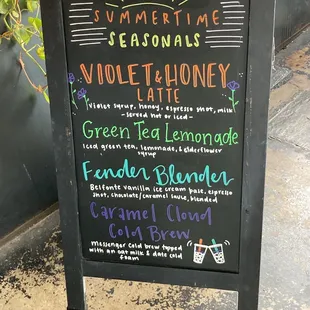 SUMMERTIME
SEASONALS
VIOLET & HONEY
LATTE
Violet syrup, honey, espresso shot, milk
- served hot or iced -
Green Tea Lemonade
Iced green tea, lemonade, & elderflower
syrup
Fender Blender
Belfonte vanilla ice cream base, espresso
shot, chocolate/caramel sauce, blended
Caramel Cloud
Cold Brew
Messenger cold brew topped
with an oat milk & date cold
foam